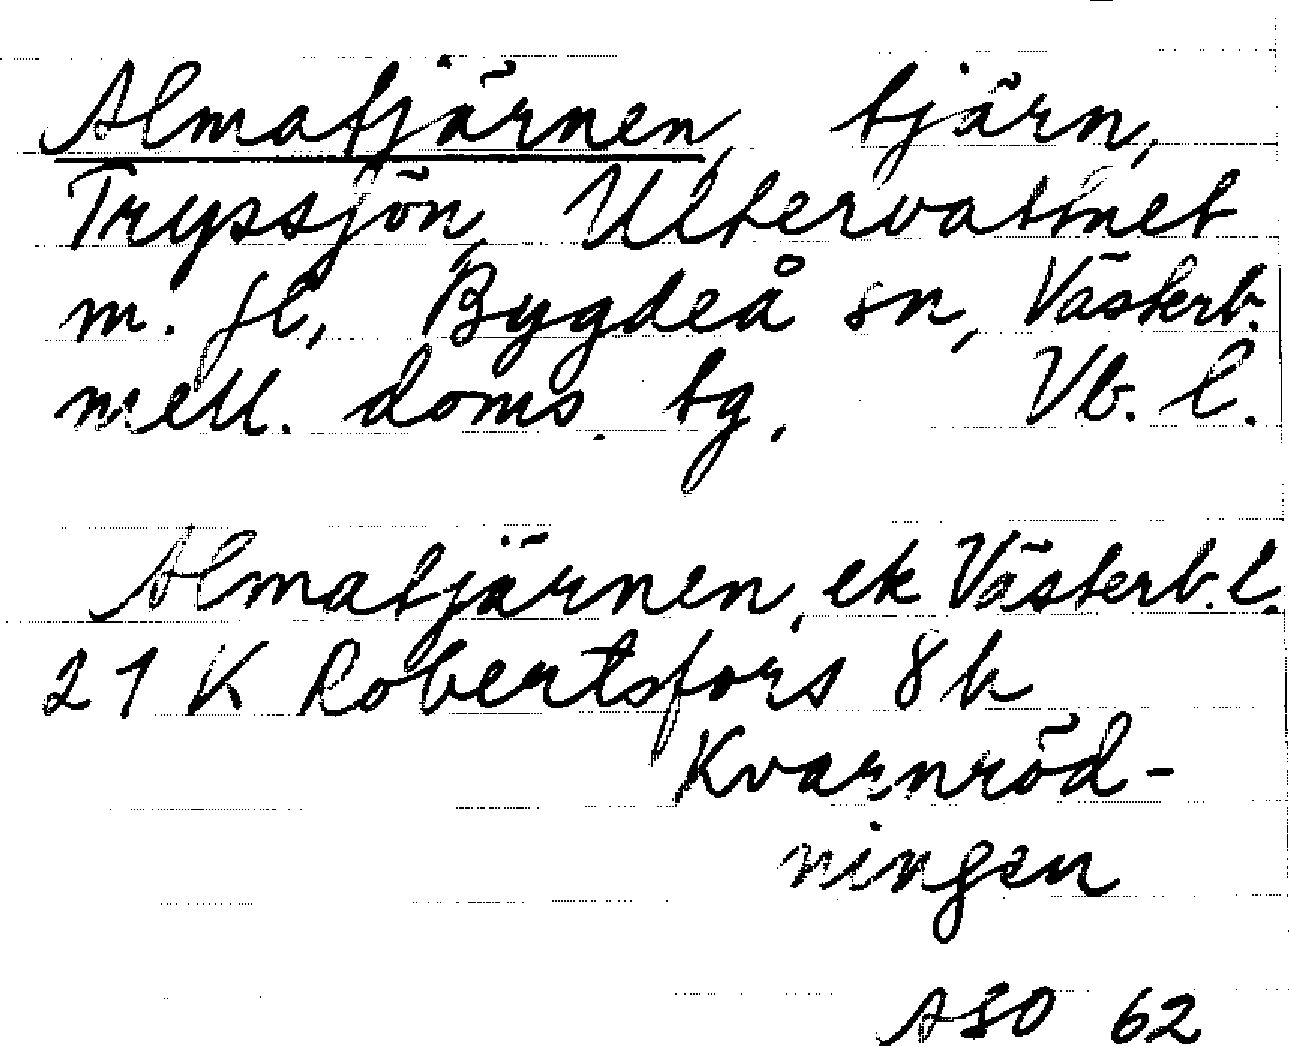 Almatjärnen, tjärn,
Tryssjön, Ultervattnet
m. fl., Bygdeå sn, Västerb.
mell. doms. tg. Vb. l.
Almatjärnen, ek Västerb. l.
21 K Robertsfors 8 b
Kvarnröd-
ningen
ASO 62